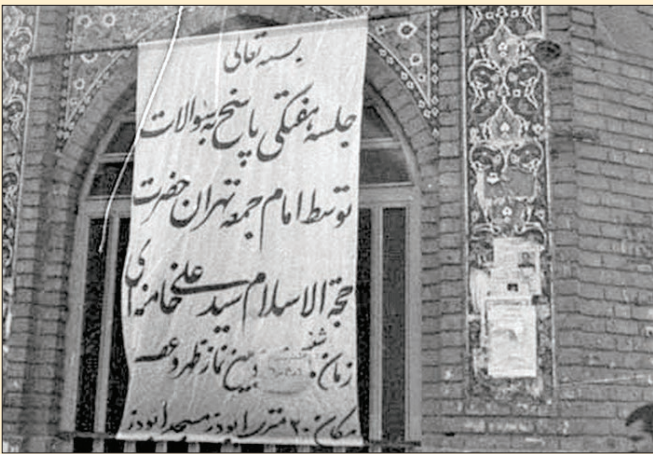 بسمه تعالی
جلسه هفتگی پاسخ به سوالات
توسط امام جمعه تهران حضرت
حجة الاسلام سید علی خامنه ای
زمان: شنبه بین نماز ظهر و عصر
مکان: ۲۰ متری ابوذر مسجد ابوذر